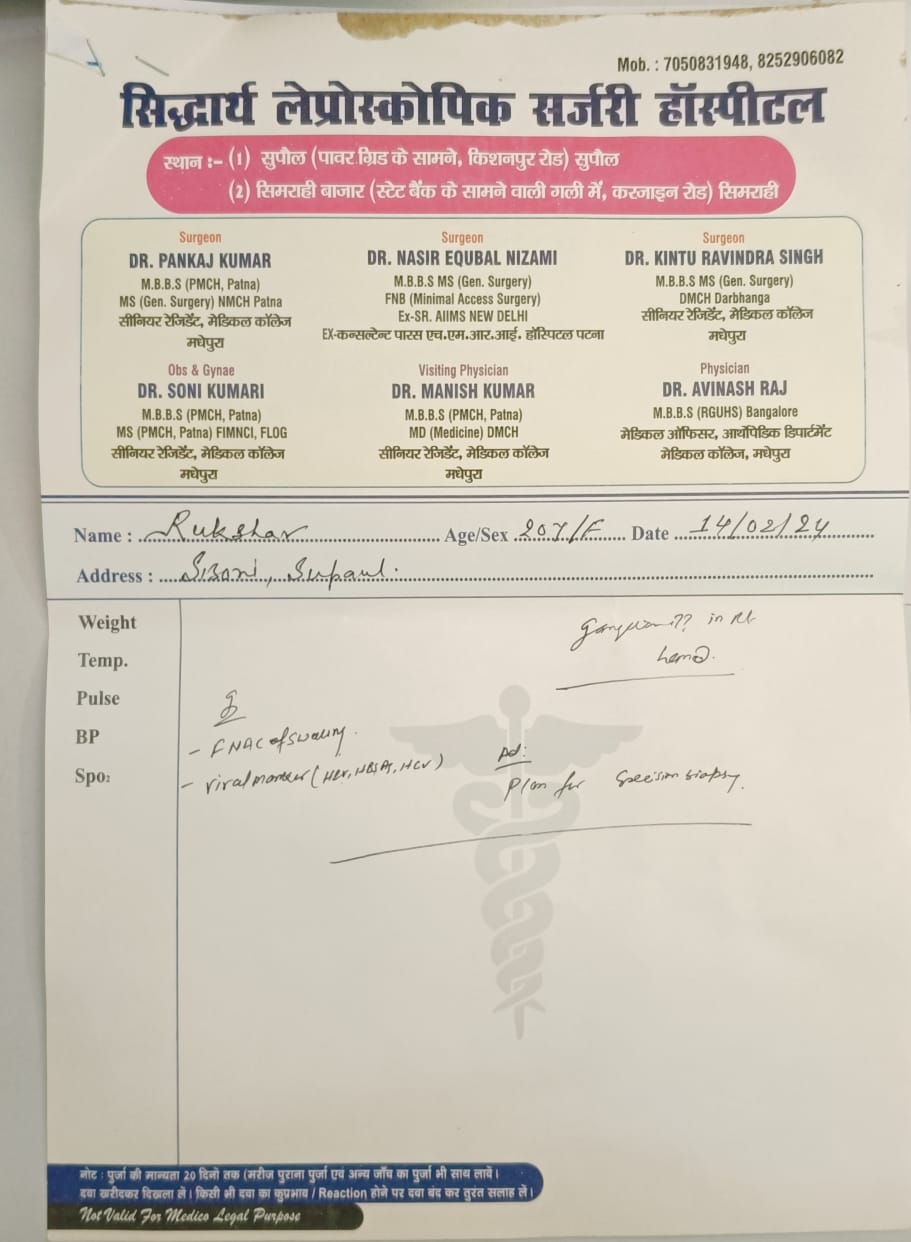 Mob. : 7050831948, 8252906082
सिद्धार्थ लेप्रोस्कोपिक सर्जरी हॉस्पीटल
स्थान :- (1) सुपौल (पावर ग्रिड के सामने, किशनपुर रोड) सुपौल
(2) सिमराही बाजार (स्टेट बैंक के सामने वाली गली में, करजाइन रोड) सिमराही
Surgeon
DR. PANKAJ KUMAR
M.B.B.S (PMCH, Patna)
MS (Gen. Surgery) NMCH Patna
सीनियर रेजिडेंट, मेडिकल कॉलेज
मधेपुरा
Surgeon
DR. NASIR EQUBAL NIZAMI
M.B.B.S MS (Gen. Surgery)
FNB (Minimal Access Surgery)
Ex-SR. AIIMS NEW DELHI
EX-कन्सल्टेन्ट पारस एच.एम.आर.आई. हॉस्पिटल पटना
Surgeon
DR. KINTU RAVINDRA SINGH
M.B.B.S MS (Gen. Surgery)
DMCH Darbhanga
सीनियर रेजिडेंट, मेडिकल कॉलेज
मधेपुरा
Obs & Gynae
DR. SONI KUMARI
M.B.B.S (PMCH, Patna)
MS (PMCH, Patna) FIMNCI, FLOG
सीनियर रेजिडेंट, मेडिकल कॉलेज
मधेपुरा
Visiting Physician
DR. MANISH KUMAR
M.B.B.S (PMCH, Patna)
MD (Medicine) DMCH
सीनियर रेजिडेंट, मेडिकल कॉलेज
मधेपुरा
Physician
DR. AVINASH RAJ
M.B.B.S (RGUHS) Bangalore
मेडिकल ऑफिसर, आर्थोपिडिक डिपार्टमेंट
मेडिकल कॉलेज, मधेपुरा
Name : Rukshar Age/Sex 20Y/F Date 14/02/24
Address : Supaul.
Weight
Temp.
Pulse
BP
Spo₂
?? in Rt
- FNAC of swelling.
- viral marker (HIV, HBsAg, HCV)
Ad:
Plan for biopsy.
नोट : पुर्जा की मान्यता 20 दिनो तक (मरीज पुराना पुर्जा एवं अन्य जाँच का पुर्जा भी साथ लावें।
दवा खरीदकर दिखला लें। किसी भी दवा का कुप्रभाव / Reaction होने पर दवा बंद कर तुरंत सलाह लें।
Not Valid For Medico Legal Purpose